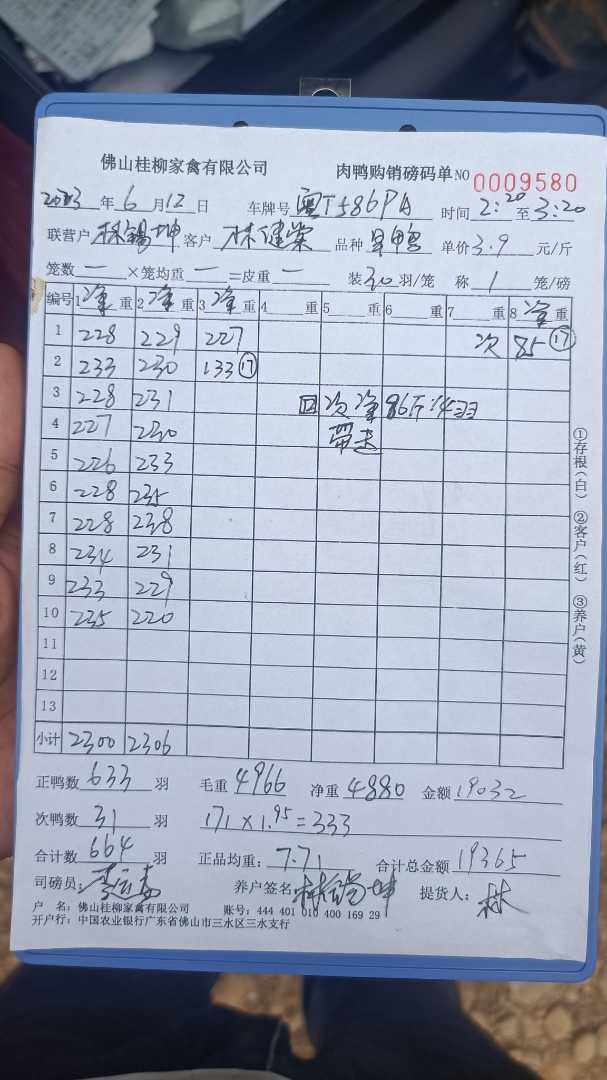 佛山桂柳家禽有限公司 肉鸭购销磅码单 NO 0009580
2023年6月12日 车牌号 粤T586PA 时间 2:20 至 3:20
联营户 林锡坤 客户 林健荣 品种 旱鸭 单价 3.9 元/斤
笼数 一 ×笼均重 一 =皮重 一 装 30 羽/笼 称 1 笼/磅
编号 1 净重 2 净重 3 净重 4 重 5 重 6 重 7 重 8 净重
1 228 229 227 次 85 ⑰
2 233 230 133 ⑰
3 228 231 回次净86斤14羽
4 227 230 带走
5 226 233
6 228 235
7 228 238
8 234 231
9 233 229
10 235 220
11
12
13
小计 2300 2306
正鸭数 633 羽 毛重 4966 净重 4880 金额 19032
次鸭数 31 羽 171×1.95=333
合计数 664 羽 正品均重: 7.71 合计总金额 19365
司磅员: 养户签名: 林锡坤 提货人: 林
户 名: 佛山桂柳家禽有限公司 账号: 444 401 010 400 169 29
开户行: 中国农业银行广东省佛山市三水区三水支行
①存根(白) ②客户(红) ③养户(黄)